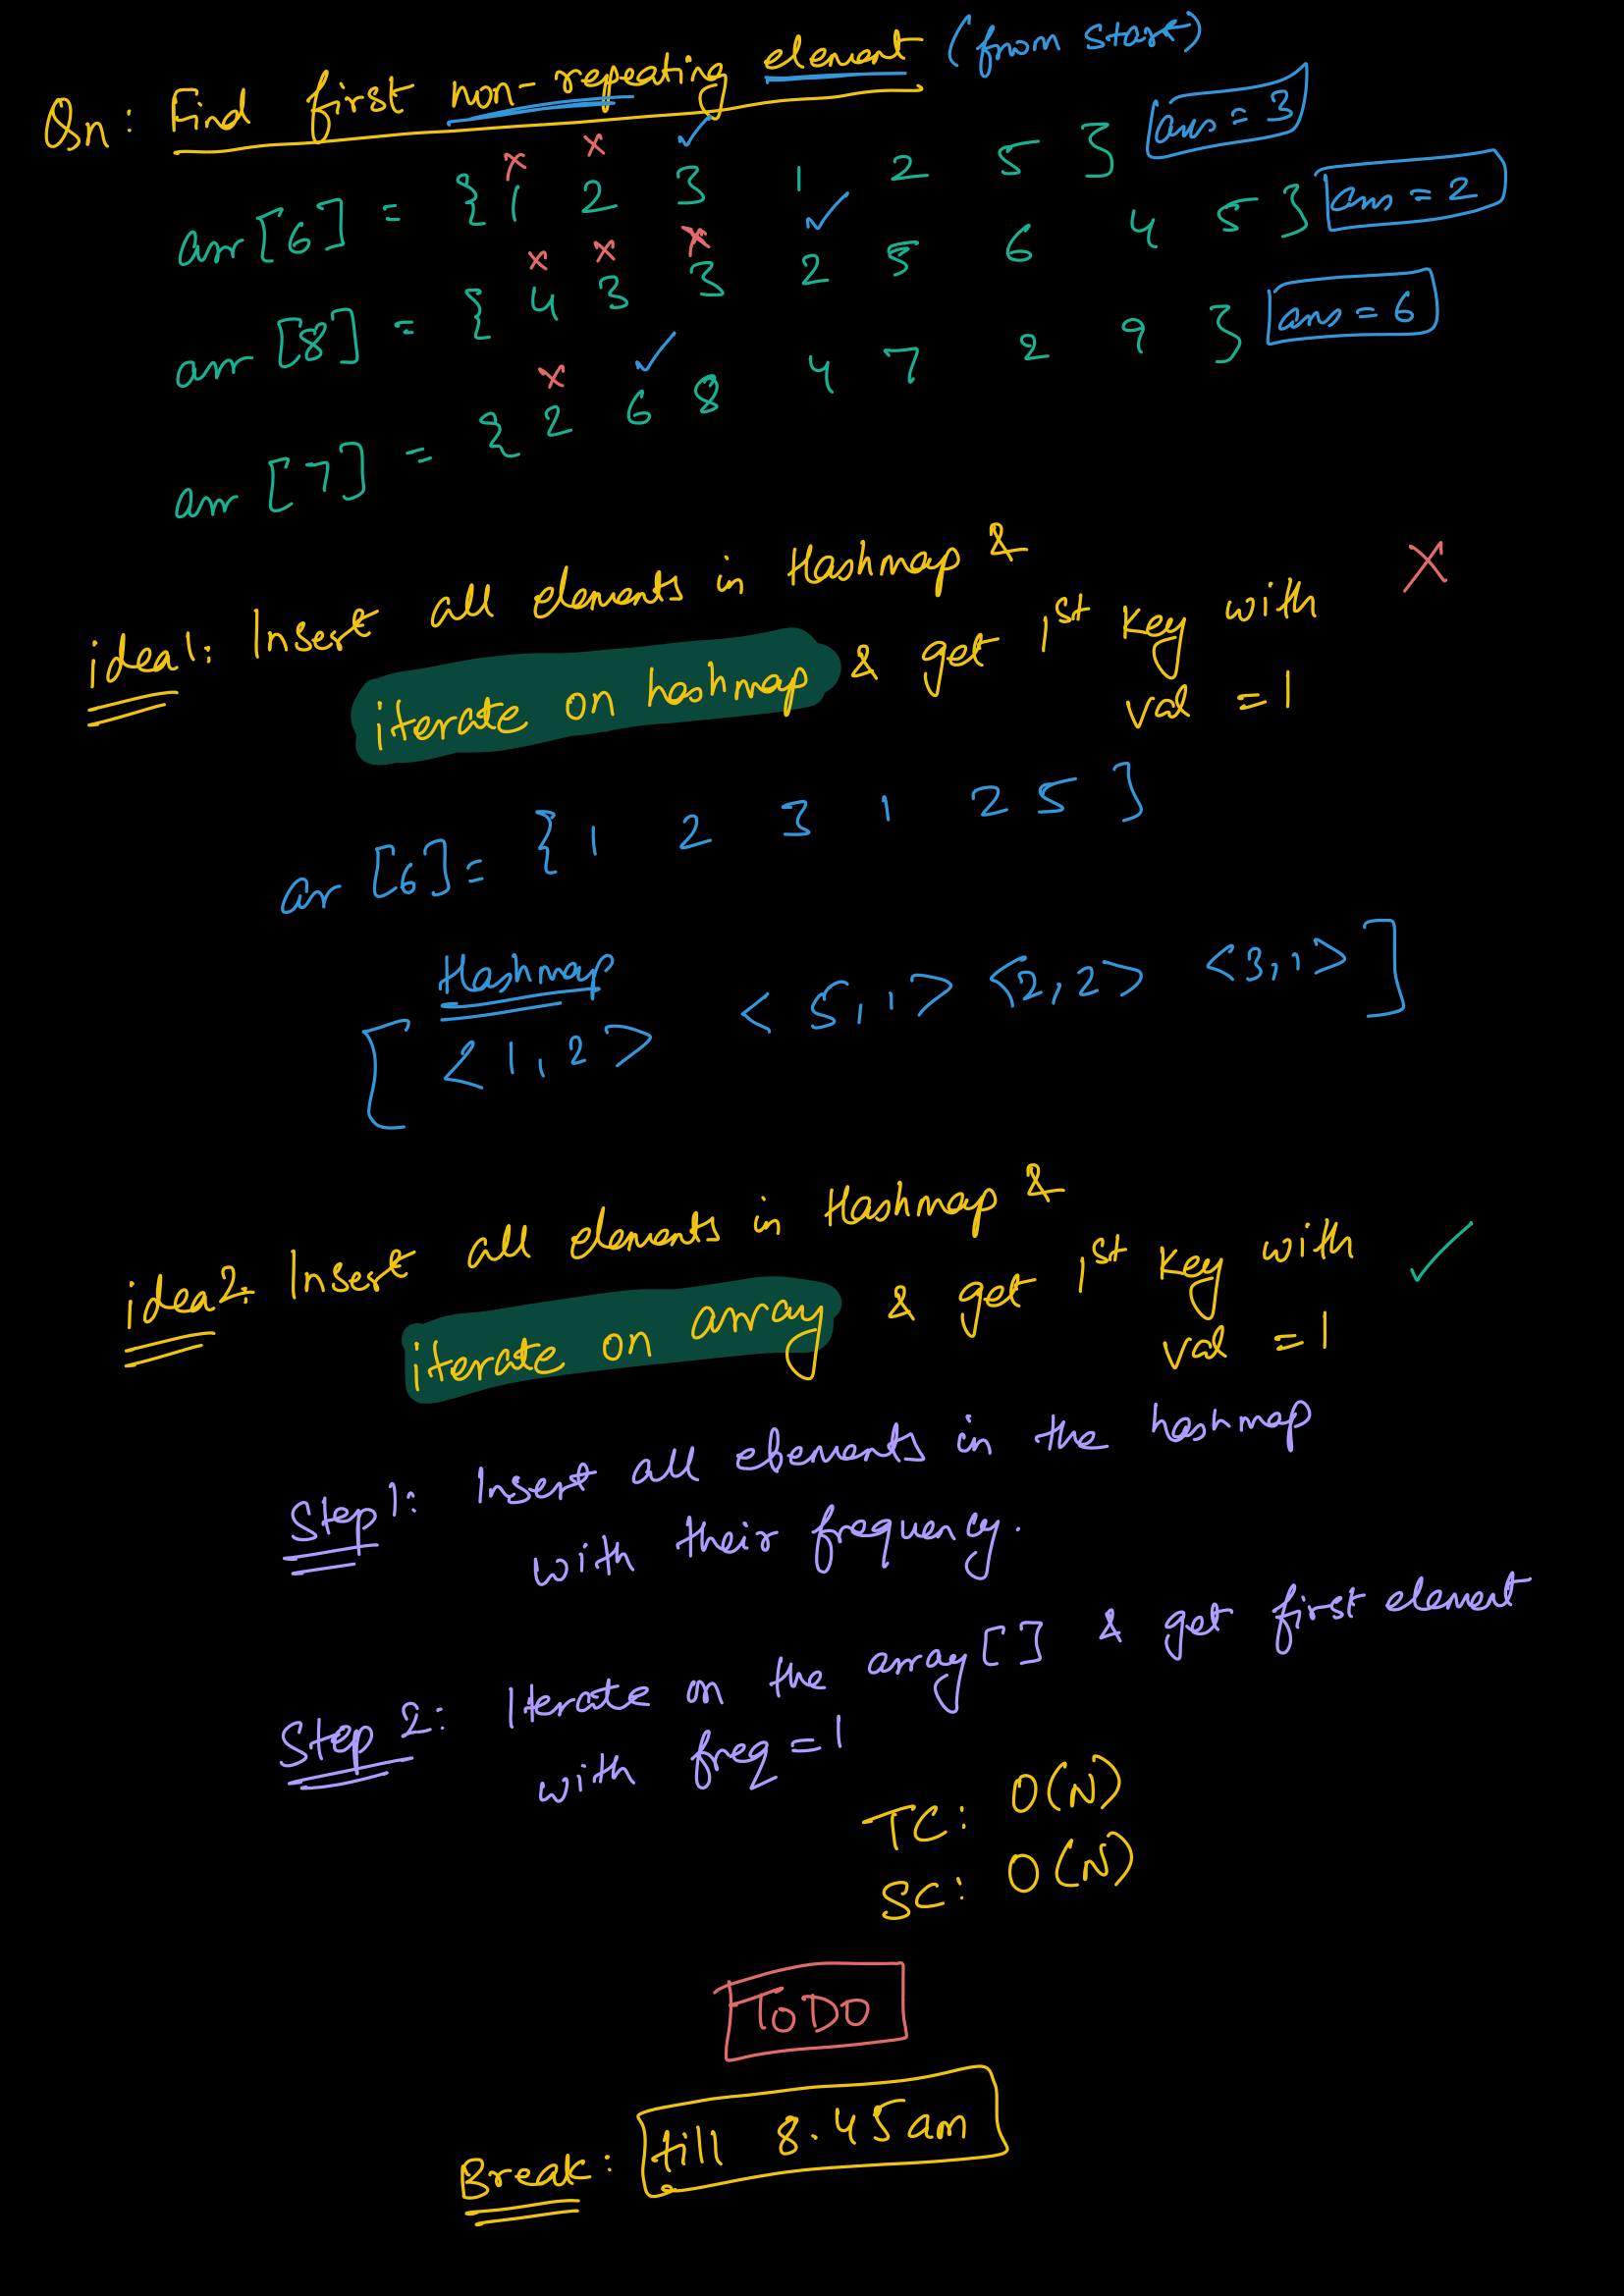 Qn: Find first non-repeating element (from start)
arr[6] = { 1 2 3 1 2 5 } ans = 3
arr[8] = { 4 3 3 2 5 6 4 5 } ans = 2
arr[7] = { 2 6 8 4 7 2 9 } ans = 6
idea1: Insert all elements in Hashmap &
iterate on hashmap & get 1st key with
val = 1
ar[6] = { 1 2 3 1 2 5 }
Hashmap
[ <1,2> <5,1> <2,2> <3,1> ]
idea2: Insert all elements in Hashmap &
iterate on array & get 1st key with
val = 1
Step1: Insert all elements in the hashmap
with their frequency.
Step 2: Iterate on the array[] & get first element
with freq = 1
TC: O(N)
SC: O(N)
ToDO
Break: till 8.45am